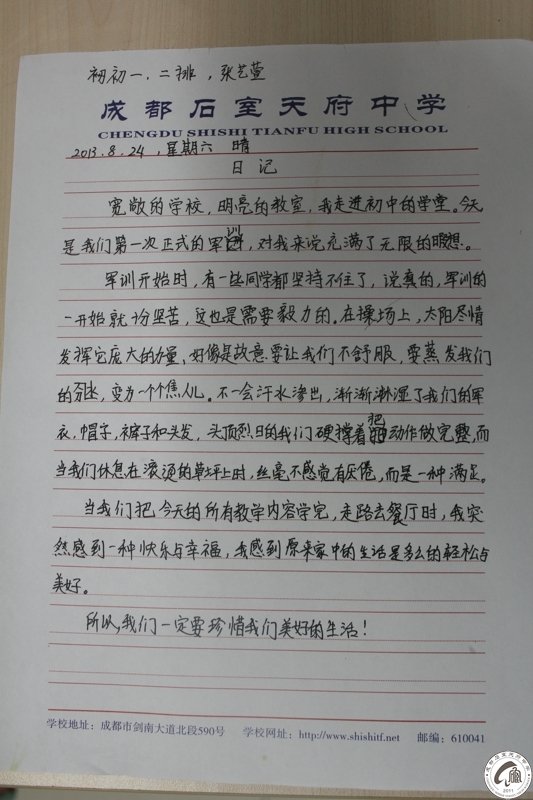 初初一．二排，张艺萱
成都石室天府中学
CHENGDU SHISHI TIANFU HIGH SCHOOL
2013.8.24，星期六 晴
日记
宽敞的学校，明亮的教室，我走进初中的学堂。今天
是我们第一次正式的军训，对我来说充满了无限的暇想。
军训开始时，有一些同学都坚持不住了，说真的，军训的
一开始就十分坚苦，这也是需要毅力的。在操场上，太阳尽情
发挥它庞大的力量，好像是故意要让我们不舒服，要蒸发我们
的，变为一个个焦人儿。不一会汗水渗出，渐渐潮湿了我们的军
衣，帽子，裤子和头发，头顶烈日的我们硬撑着把动作做完整，而
当我们休息在滚烫的草坪上时，丝毫不感觉有厌倦，而是一种满足。
当我们把今天的所有教学内容学完，走路去餐厅时，我突
然感到一种快乐与幸福，我感到原来家中的生活是多么的轻松与
美好。
所以，我们一定要珍惜我们美好的生活！
学校地址：成都市剑南大道北段590号 学校网址：http://www.shishitf.net 邮编：610041
2011